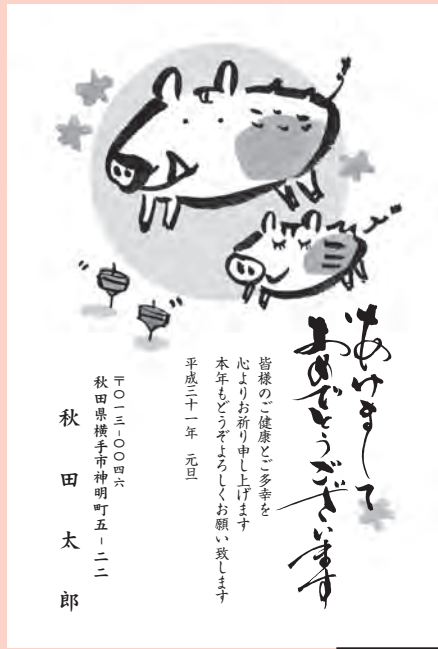 あけまして
おめでとうございます
皆様のご健康とご多幸を
心よりお祈り申し上げます
本年もどうぞよろしくお願い致します
平成三十一年　元旦
〒〇一三-〇〇四六
秋田県横手市神明町五-二二
秋田太郎